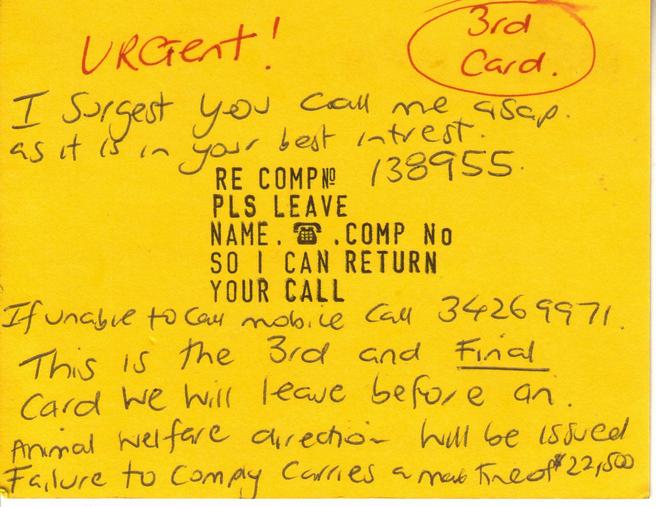 URGent!
3rd
Card.
I Surgest you Call me asap.
as it is in your best intrest.
RE COMP№ 138955.
PLS LEAVE
NAME. ☎ .COMP No
SO I CAN RETURN
YOUR CALL
If unable to Call mobile Call 34269971.
This is the 3rd and Final
Card We Will leave before an.
Animal Welfare direction Will be issued
Failure to Comply Carries a max fine of $22,500